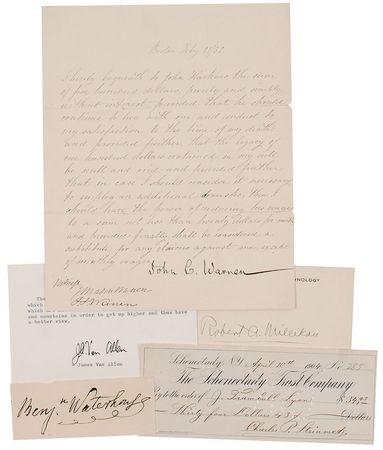 Boston Feby 28/52
I hereby bequeath to John Harkins, the sum
of five hundred dollars, purely and simply
without interest provided that he should
continue to live with me and conduct to
my satisfaction to the time of my death
and provided further that the legacy of
one hundred dollars contained in my will
be null and void; and provided further
that in case I should consider it necessary
to employ an additional domestic, then I
should have the power of reducing his wages
to a sum not less than twenty dollars per month
and provided finally, shall be considered a
substitute for any claims against me, except
of monthly wages
John C. Warren
Witness
J. Mason Warren
The
which
which
and mountains in order to get up higher and thus have
a better view.
James Van Allen
NOLOGY
Robert A. Millikan
Benjn. Waterhouse
Schenectady, N.Y. April 10th 1904 No. 285
The Schenectady Trust Company
Pay to the order of J. Trumbull Lyon $34.93
Thirty four Dollars Dollars
Charles P. Steinmetz